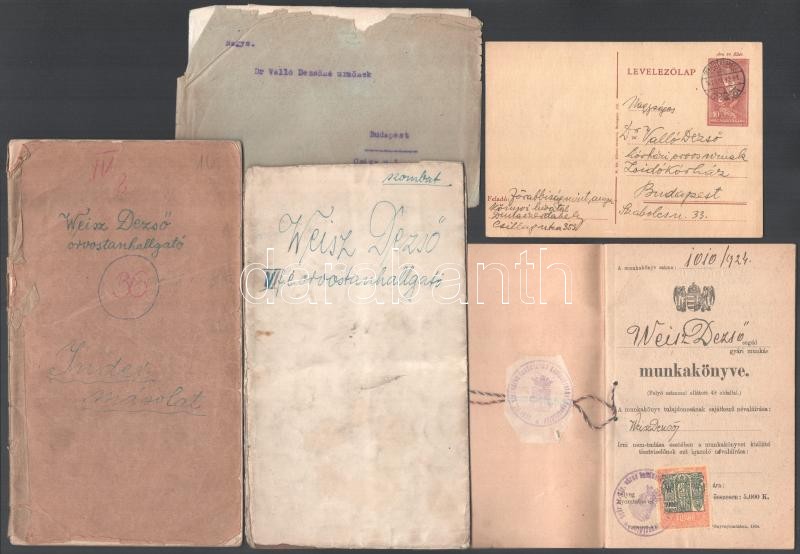 Nagys.
Dr Valló Dezsőné urnőnek
Budapest
LEVELEZŐLAP
Nagyságos
Dr Valló Dezső
kórházi orvos urnak
Zsidókórház
Budapest
Szabolcs u. 33.
Feladó:
10
IV
Weisz Dezső
orvostanhallgató
36
Index
másolat
szombat
Weisz Dezső
orvostanhallgató
darabanth
A munkakönyv száma: 1010/924.
Weisz Dezső
gyári munkás
munkakönyve.
(Folyó számmal ellátott 48 oldallal.)
A munkakönyv tulajdonosának sajátkezű névaláírása:
Weisz Dezső
Irni nem-tudása esetében a munkakönyvet kiállító
tisztviselőnek ezt igazoló névaláírása:
Ára:
Összesen: 5.000 K.